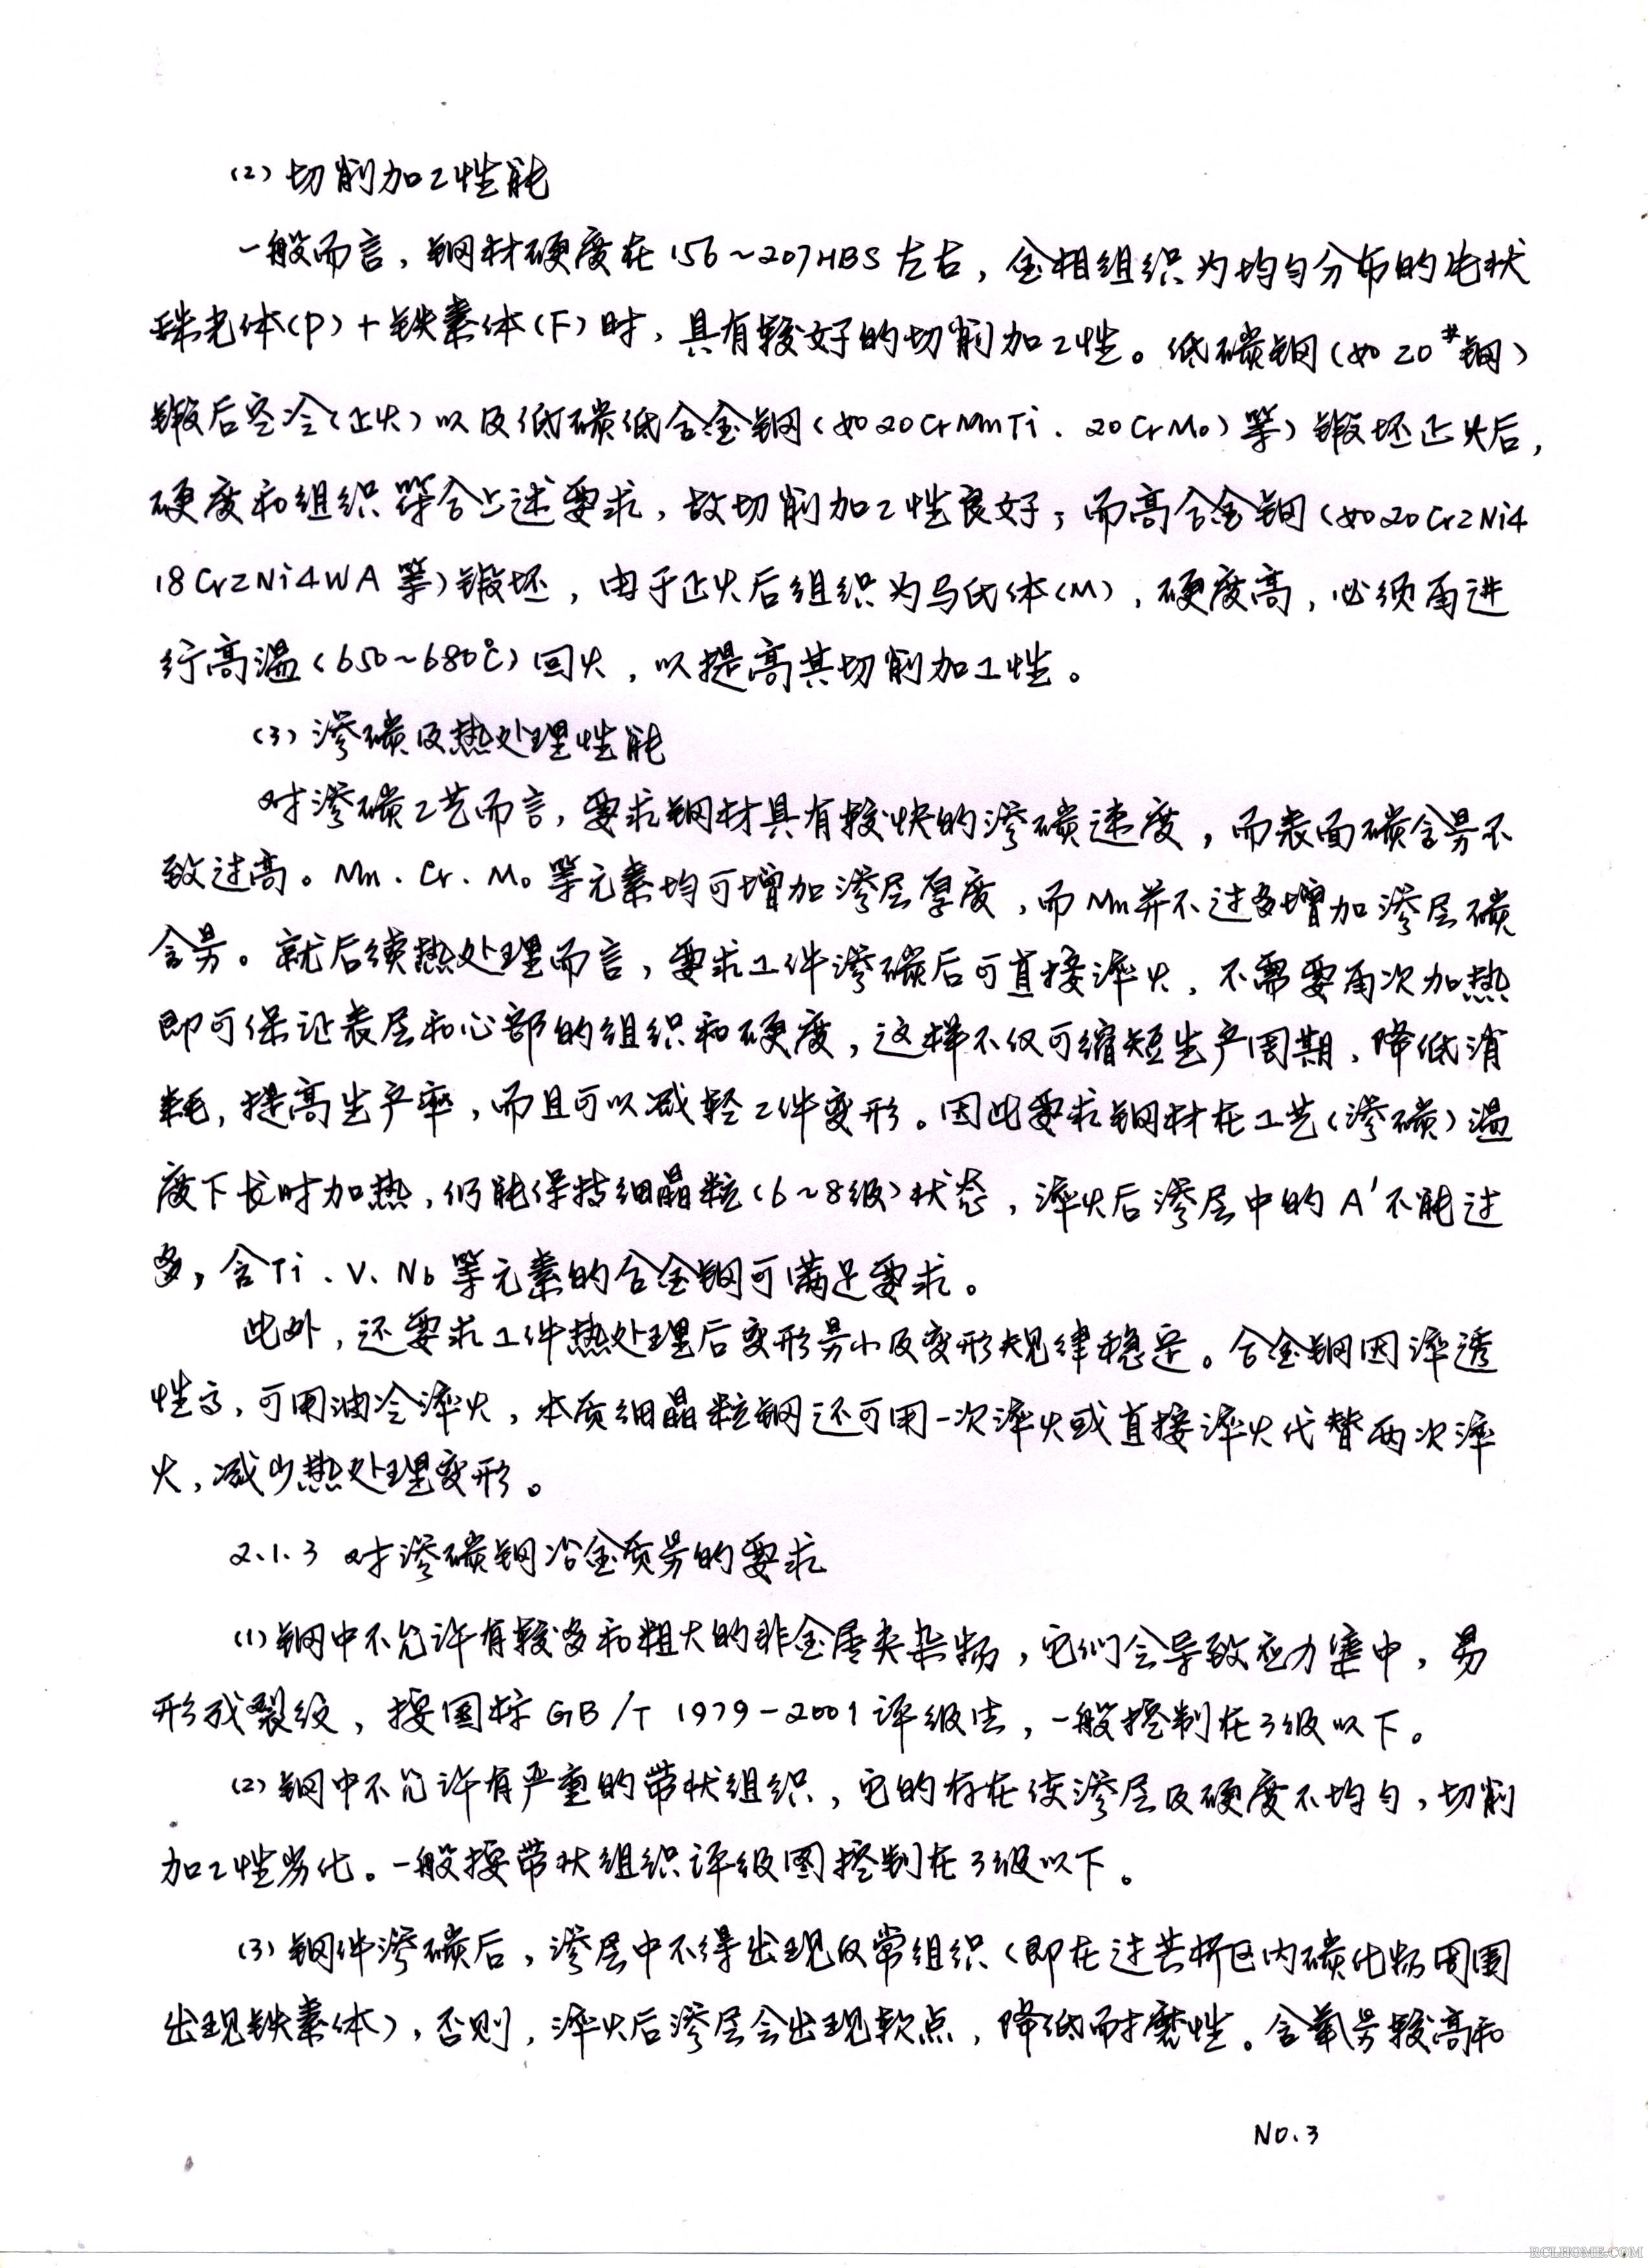 (2) 切削加工性能
一般而言，钢材硬度在156～207HBS左右，金相组织为均匀分布的片状
珠光体(P)＋铁素体(F)时，具有较好的切削加工性。低碳钢(如20#钢)
锻后空冷(正火)以及低碳低合金钢(如20CrMnTi、20CrMo)等)锻坯正火后，
硬度和组织符合上述要求，故切削加工性良好；而高合金钢(如20Cr2Ni4
18Cr2Ni4WA等)锻坯，由于正火后组织为马氏体(M)，硬度高，必须再进
行高温(650～680℃)回火，以提高其切削加工性。
(3) 渗碳及热处理性能
对渗碳工艺而言，要求钢材具有较快的渗碳速度，而表面碳含量不
致过高。Mn、Cr、Mo等元素均可增加渗层厚度，而Mn并不过多增加渗层碳
含量。就后续热处理而言，要求工件渗碳后可直接淬火，不需要再次加热
即可保证表层和心部的组织和硬度，这样不仅可缩短生产周期、降低消
耗，提高生产率，而且可以减轻工件变形。因此要求钢材在工艺(渗碳)温
度下长时加热，仍能保持细晶粒(6～8级)状态，淬火后渗层中的A'不能过
多，含Ti、V、Nb等元素的合金钢可满足要求。
此外，还要求工件热处理后变形量小及变形规律稳定。合金钢因淬透
性高，可用油冷淬火，本质细晶粒钢还可用一次淬火或直接淬火代替两次淬
火，减少热处理变形。
2.1.3 对渗碳钢冶金质量的要求
(1) 钢中不允许有较多和粗大的非金属夹杂物，它们会导致应力集中，易
形成裂纹，按国标GB/T 1979-2001评级法，一般控制在3级以下。
(2) 钢中不允许有严重的带状组织，它的存在使渗层及硬度不均匀，切削
加工性劣化。一般按带状组织评级图控制在3级以下。
(3) 钢件渗碳后，渗层中不得出现反常组织(即在过共析区内碳化物周围
出现铁素体)，否则，淬火后渗层会出现软点，降低耐磨性。含氧量较高和
NO.3
RCLHOME.COM